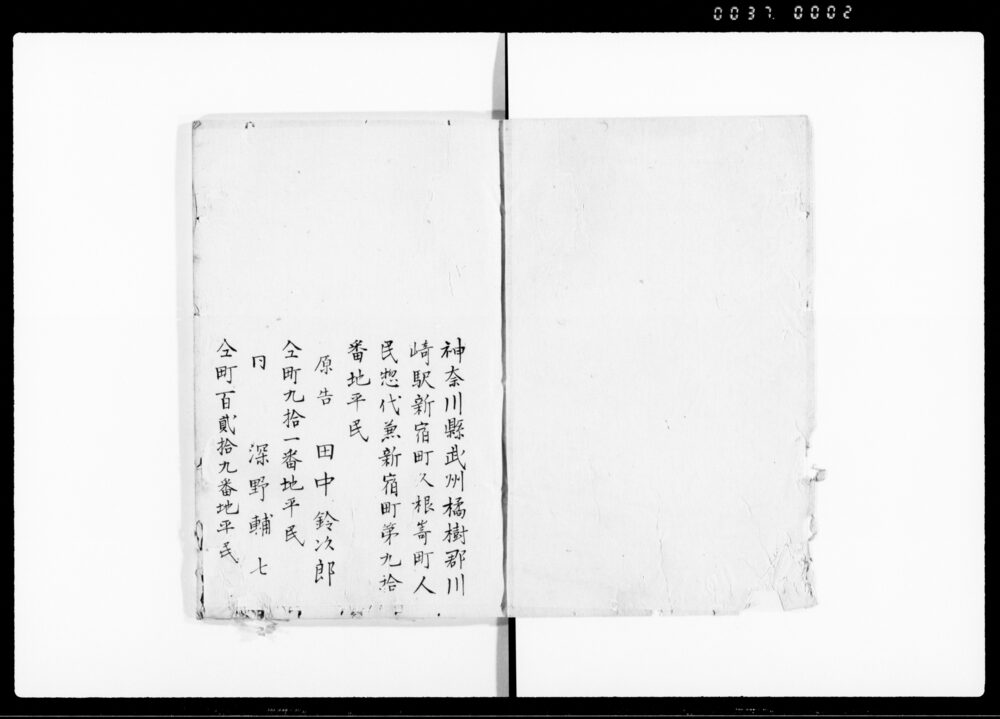 0037 0002
神奈川縣武州橘樹郡川
崎駅新宿町久根嵜町人
民惣代兼新宿町第九拾
番地平民
原告 田中鈴次郎
仝町九拾一番地平民
同 深野輔七
仝町百貳拾九番地平民